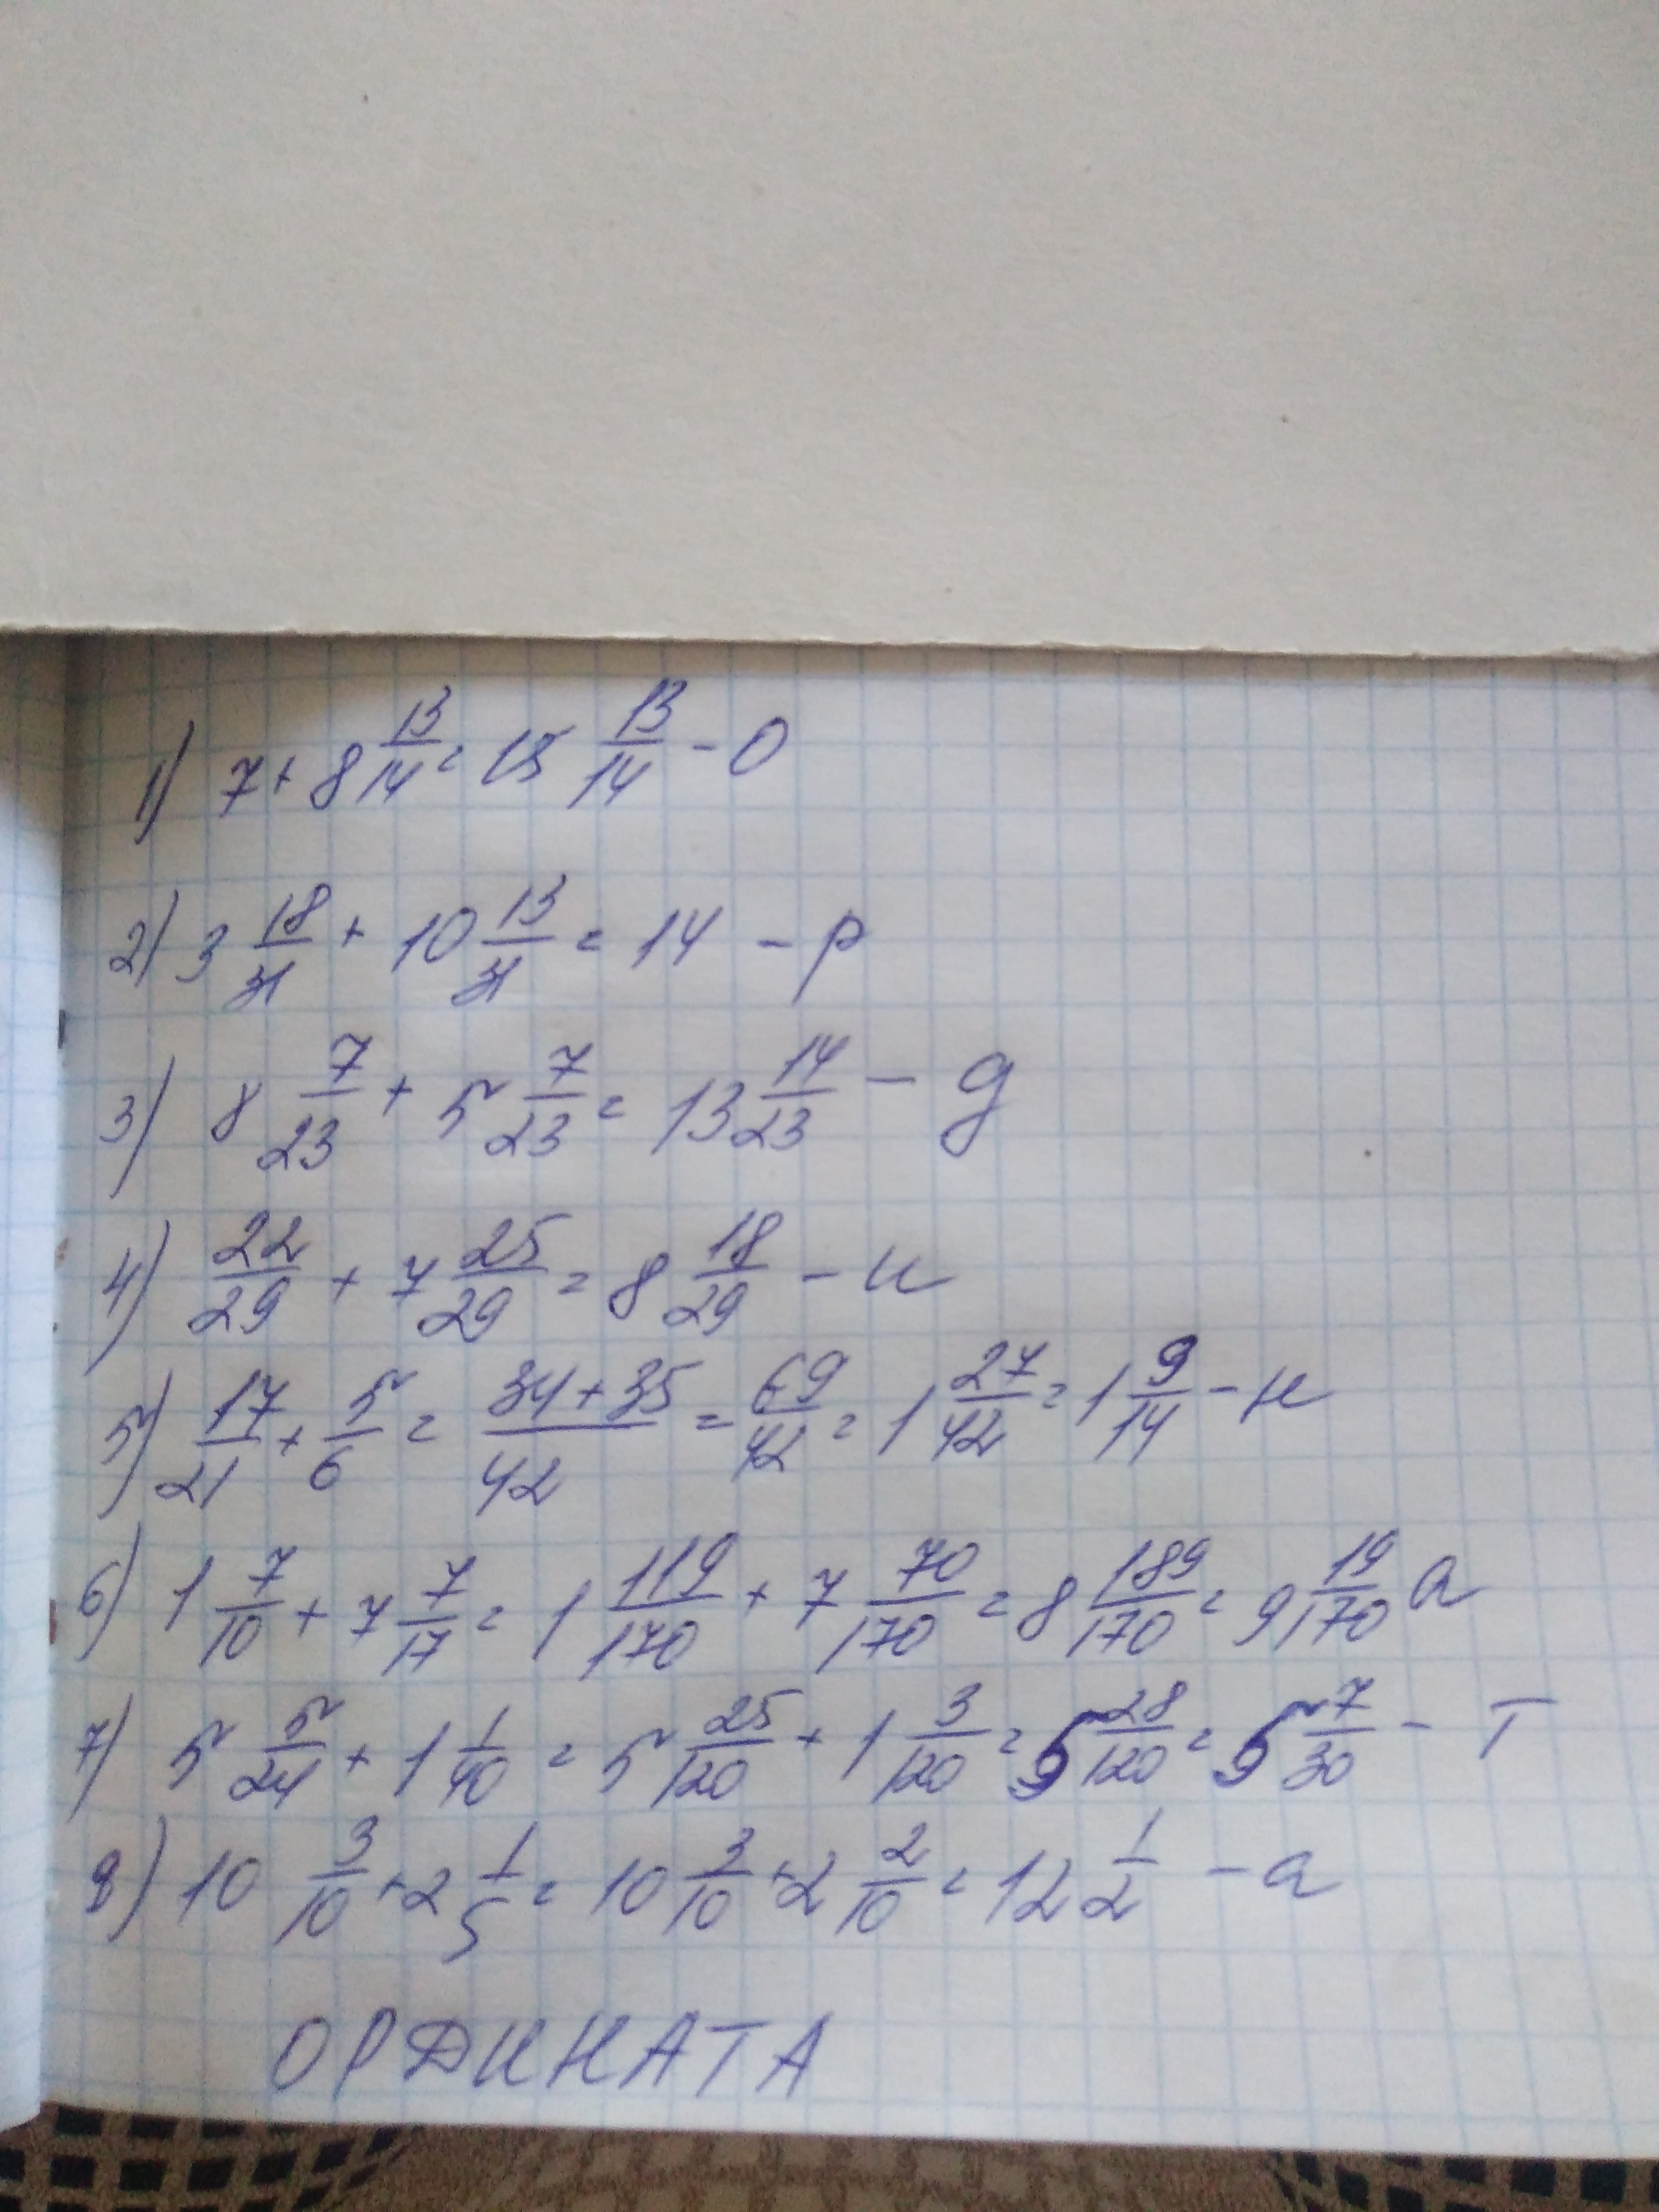 1) 7 + 8 13/14 = 15 13/14 - О
2) 3 18/31 + 10 13/31 = 14 - р
3) 8 7/23 + 5 7/23 = 13 14/23 - д
4) 22/29 + 7 25/29 = 8 18/29 - и
5) 17/21 + 5/6 = 34+35/42 = 69/42 = 1 27/42 = 1 9/14 - н
6) 1 7/10 + 7 7/17 = 1 119/170 + 7 70/170 = 8 189/170 = 9 19/170 а
7) 5 5/24 + 1 1/40 = 5 25/120 + 1 3/120 = 6 28/120 = 6 7/30 - Т
8) 10 3/10 + 2 1/5 = 10 3/10 + 2 2/10 = 12 1/2 - а
ОРДИНАТА